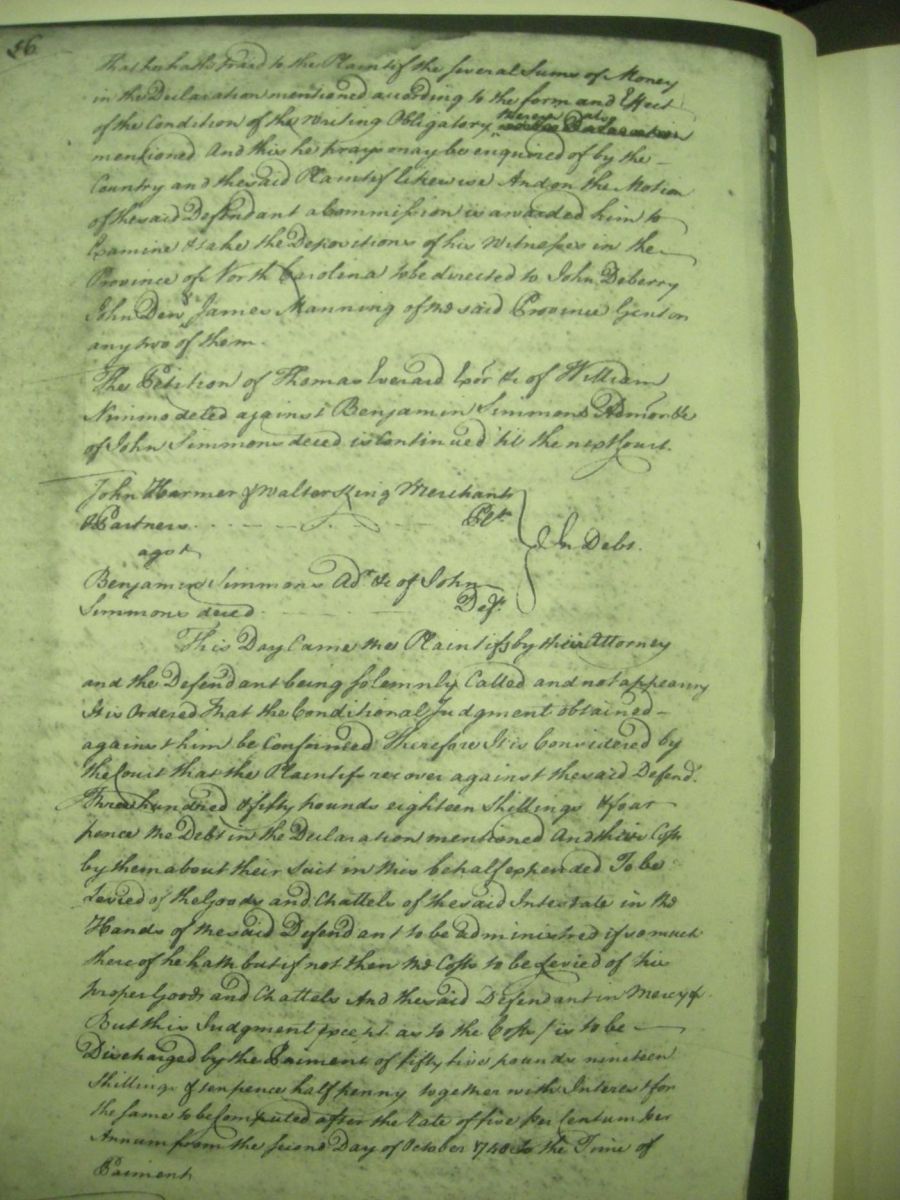 56
that he hath paid to the Plaintif the several Sums of Money
in the Declaration mentioned according to the form and Effect
of the Condition of the Writing Obligatory therein also
mentioned And this he prays may be enquired of by the
Country and the said Plaintif likewise And on the Motion
of the said Defendant a Commission is awarded him to
Examine & take the Depositions of his Witnesses in the
Province of North Carolina to be directed to John Deberry
John Dew James Manning of the said Province Gent or
any two of them.
The Petition of Thomas Everard Exor. &c of William
Nimmo deced against Benjamin Simmons Admor. &c
of John Simmons deced is Continued 'til the next Court.
John Harmer & Walter King Merchants
& Partners Plts.
agst
Benjamin Simmons Adr. &c of John
Simmons deced Deft.
In Debt.
This Day Came the Plaintifs by their Attorney
and the Defendant being Solemnly Called and not appearing
It is Ordered that the Conditional Judgment obtained
against him be Confirmed Therefore It is Considered by
the Court that the Plaintifs recover against the said Defend.t
Three hundred & fifty pounds eighteen Shillings & four
pence the Debt in the Declaration mentioned And their Costs
by them about their Suit in this behalf expended To be
Levied of the Goods and Chattels of the said Intestate in the
Hands of the said Defendant to be administred if so much
thereof he hath but if not then the Costs to be Levied of his
proper Goods and Chattels And the said Defendant in Mercy &c
But this Judgment (except as to the Costs) is to be
Discharged by the Paiment of fifty five pounds nineteen
Shillings & ten pence half penny together with Interest for
the same to be Computed after the Rate of five per Centum per
Annum from the second Day of October 1740 to the Time of
Paiment